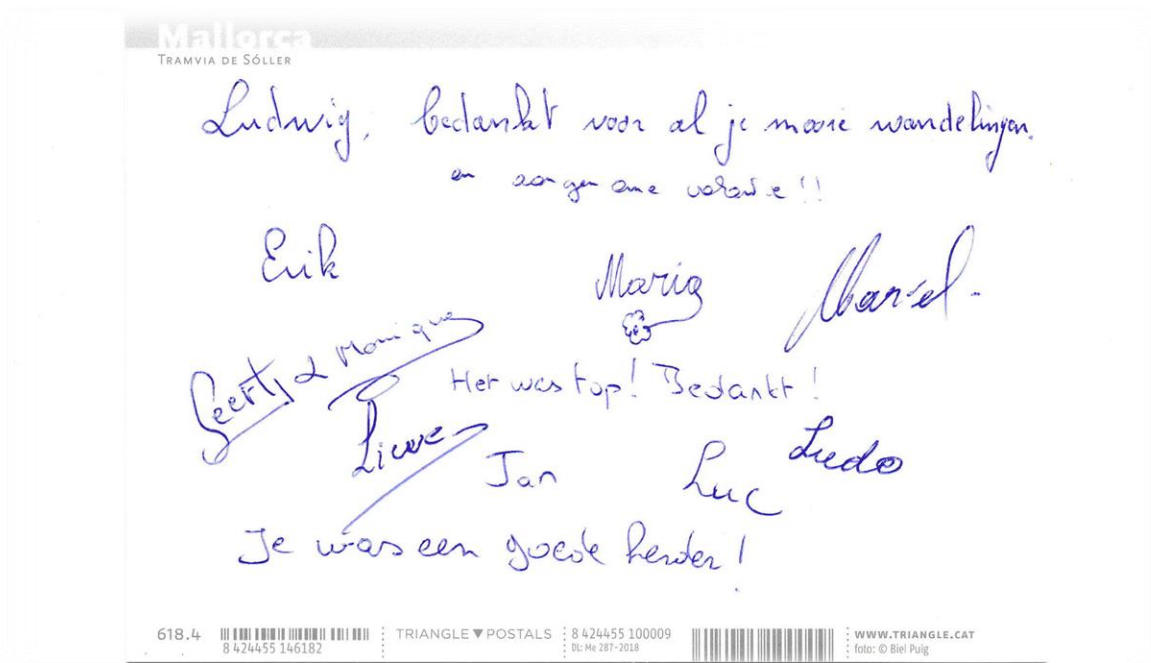 Mallorca
TRAMVIA DE SÓLLER
Ludwig, bedankt voor al je mooie wandelingen.
en aangename vakantie!!
Erik
Maria
Marcel.
Geert & Monique
Het was top! Bedankt!
Lieve
Jan
Luc
Ludo
Je was een goede herder!
618.4
8 424455 146182
TRIANGLE▼POSTALS
8 424455 100009
DL: Me 287-2018
WWW.TRIANGLE.CAT
foto: © Biel Puig